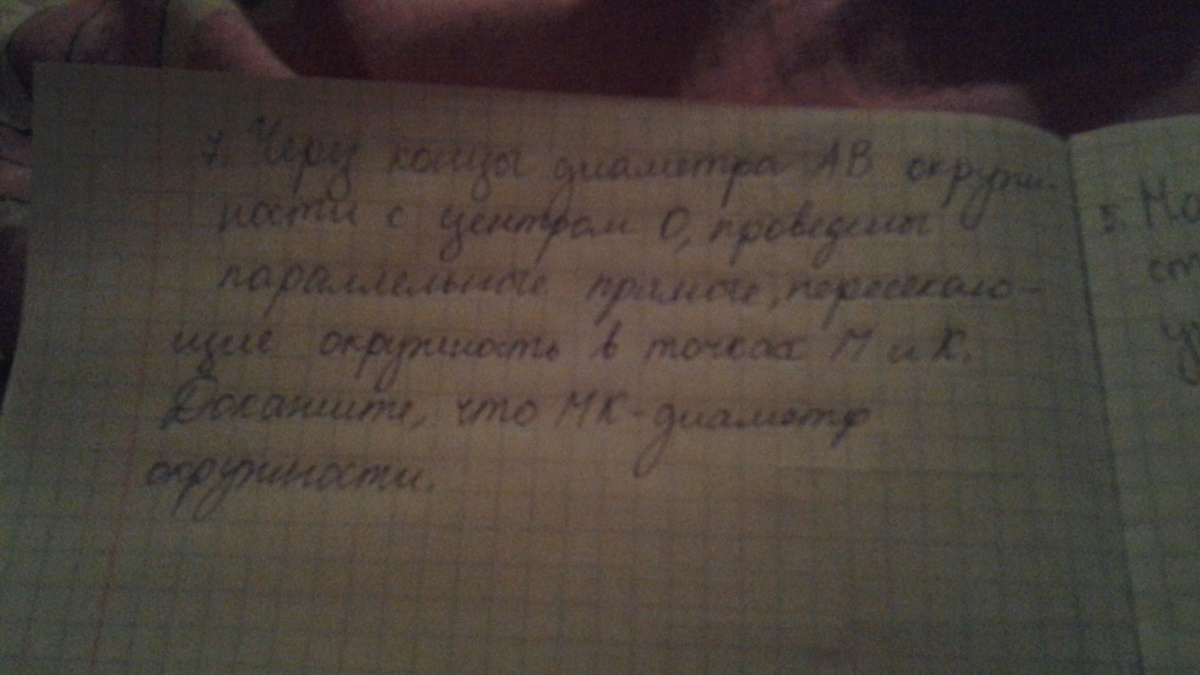 7. Через концы диаметра АВ окруж-
ности с центром О, проведены
параллельные прямые, пересекаю-
щие окружность в точках М и К.
Докажите, что МК-диаметр
окружности.
5.